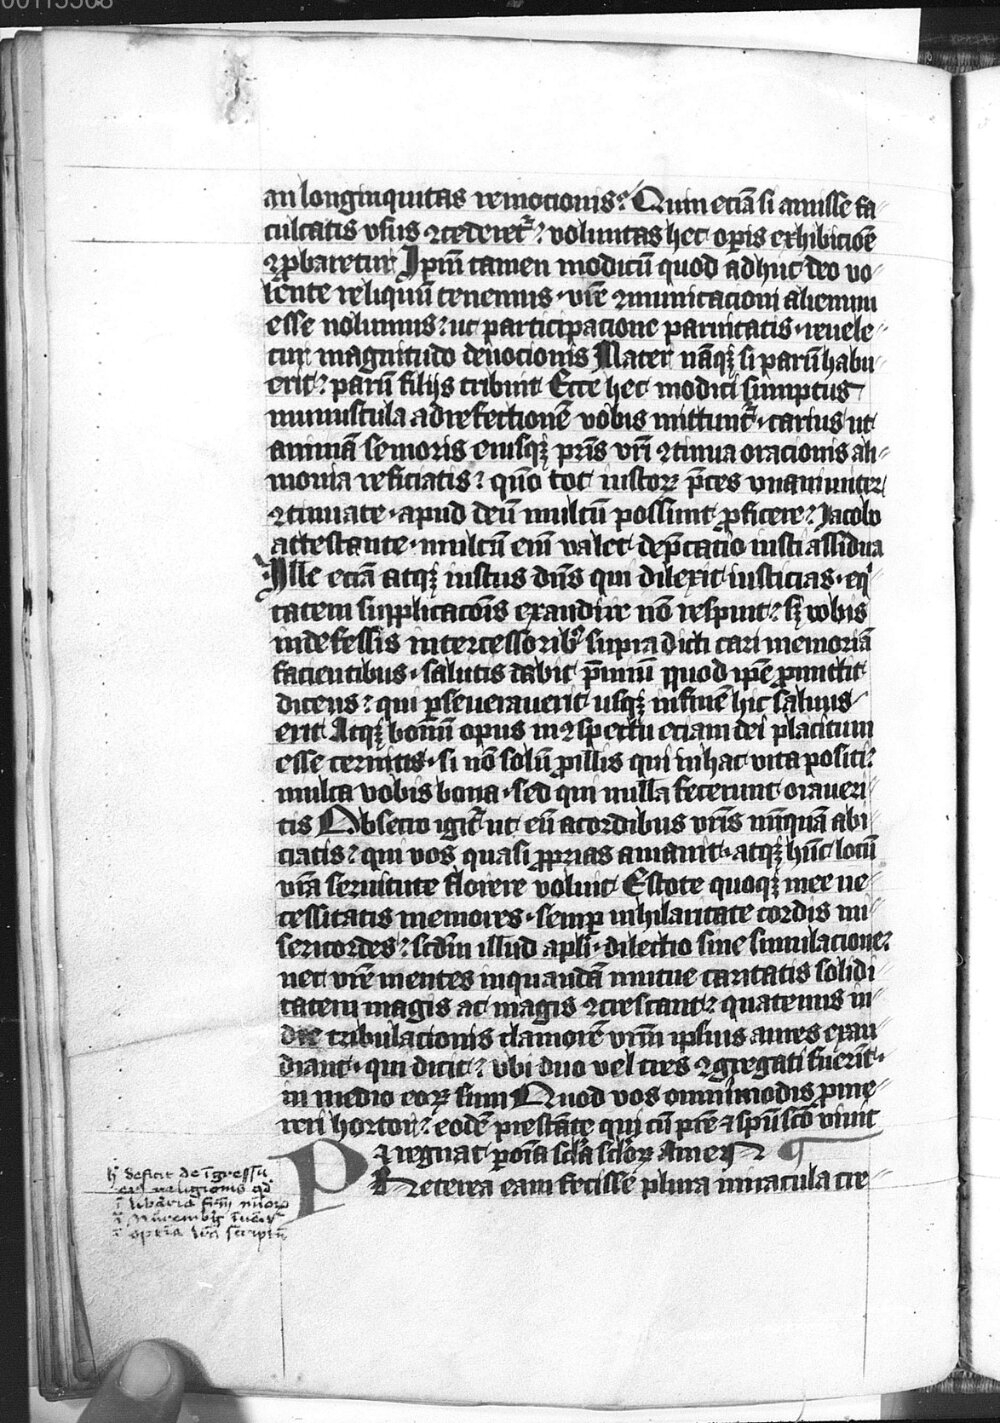 00115568
an longinquitas remocionis? Quin eciā si amisse fa
cultatis usus ɔcederet᷑? voluntas hec opis exhibicōe
ɔprobaretur Ipm̄ tamen modicū quod adhuc deo vo
lente reliquū tenemus · vr̄e ɔmunicacioni alienum
esse nolumus? ut participacione paruitatis · reuele
tur magnitudo deuocionis Mater nāqꝫ si parū habu
erit? parū filijs tribuit Ecce hec modici sumptus
munuscula ad refectionē vobis mittunt᷑ · carius ut
animā senioris eiusqꝫ pr̄is vr̄i ɔtinua oracionis ali
monia reficiatis? quō tot iustoꝝ p̄ces unanimiter
ɔtinuate · apud deū multū possunt ꝓficere? Jacobo
attestante · multū em̄ valet dep̄catio iusti assidua
Ille eciā atqꝫ iustus dn̄s qui dilexit iusticias · eq̄
tatem supplicacōis exaudire nō respuit? sꝫ vobis
indefessis intercessoribꝰ supradicti cari memoriā
facientibus · salutis dabit p̄miū quod ip̄e ꝓmittit
dicens? qui ꝑseuerauerit usqꝫ in finē hic saluus
erit Atqꝫ bonū opus in ɔspectu eciam dei placitum
esse cernitis · si nō solū ꝓ illis qui in hac vita positi?
multa vobis bona · sed qui nulla fecerunt oraueri
tis Obsecro igit᷑ ut eū a cordibus vr̄is nūquā abi
ciatis? qui vos quasi ꝓprias amauit · atqꝫ hūc locū
vr̄a seruitute florere voluit Estote quoqꝫ mee ne
cessitatis memores · semꝑ in hilaritate cordis mi
sericordes? scdm̄ illud apli · dilectio sine simulacione?
nec vr̄e mentes in quandā mutue caritatis solidi
tatem magis ac magis ɔcrescant? quatenus in
die tribulacionis clamorē vr̄m ipsius aures exau
diant · qui dicit? ubi duo vel tres ɔgregati fuerīt ·
in medio eoꝝ sum Quod vos omnimodis ꝓme
reri hortor? eodē prestāte qui cū pr̄e ⁊ spū sc̄o viuit
⁊ regnat ꝑ oīa sc̄la sc̄loꝝ Amen
Preterea eam fecisse plura miracula cre
h̄ deficit de īgressu
religionis
ī libraria
ī Nurenberg